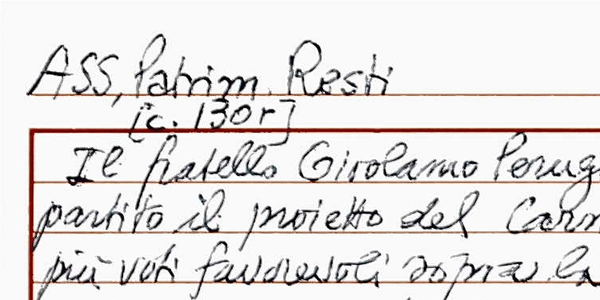 ASS, Patrim. Resti
[c. 130r]
Il fratello Girolamo Perug
partito il proietto del Carm
più voti favorevoli sopra la